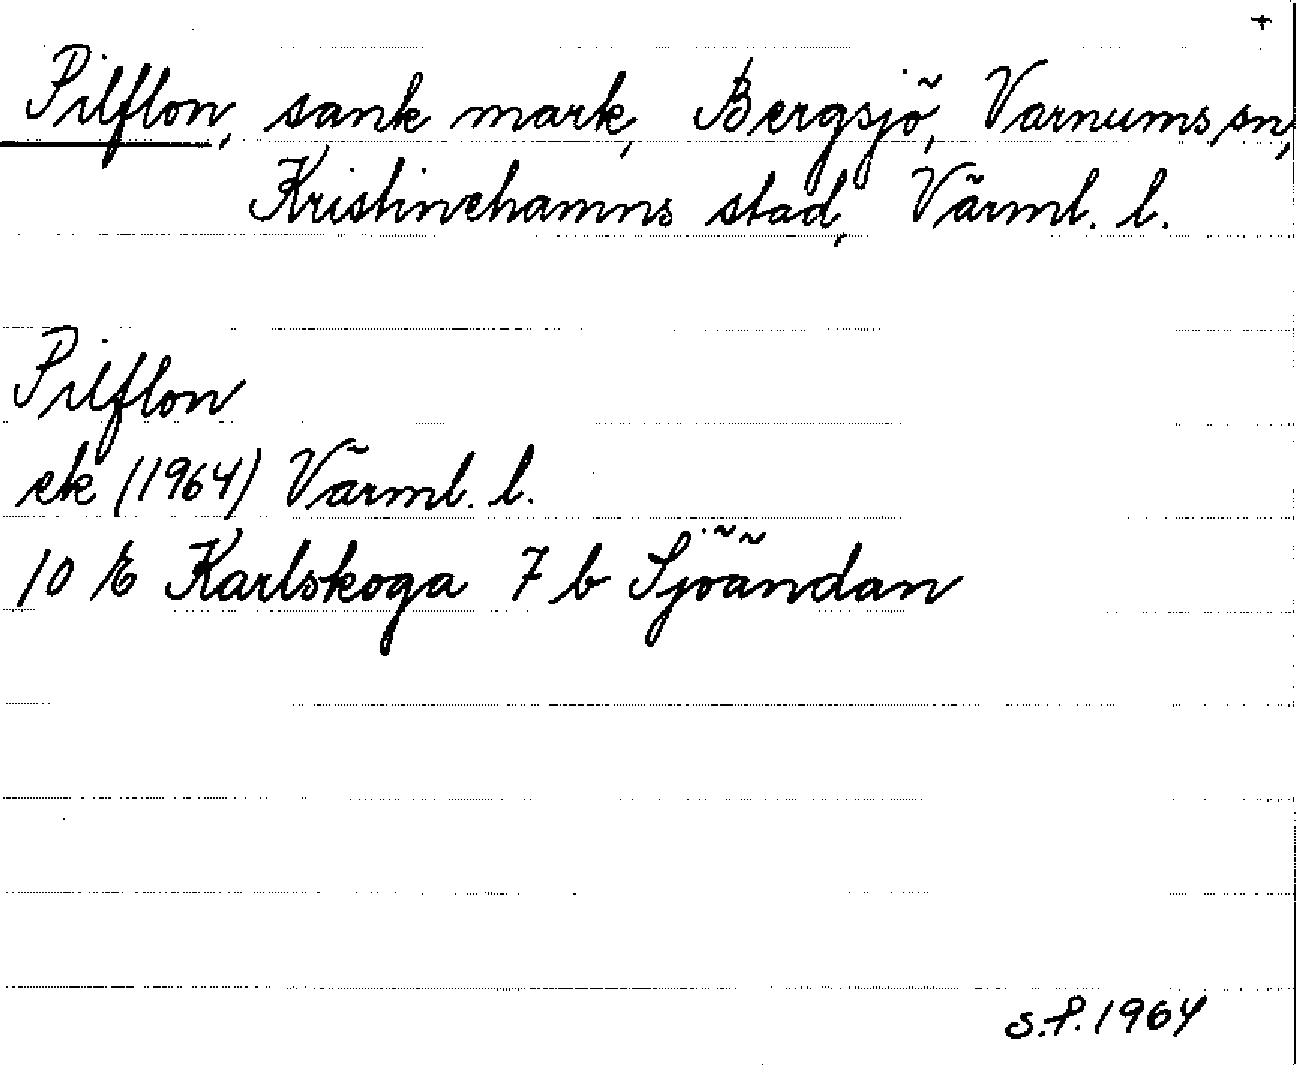 +
Pilflon, sank mark, Bergsjö, Varnums sn,
Kristinehamns stad, Värml. l.
Pilflon
ek (1964) Värml. l.
10 E Karlskoga 7 b Sjöändan
S.P. 1964